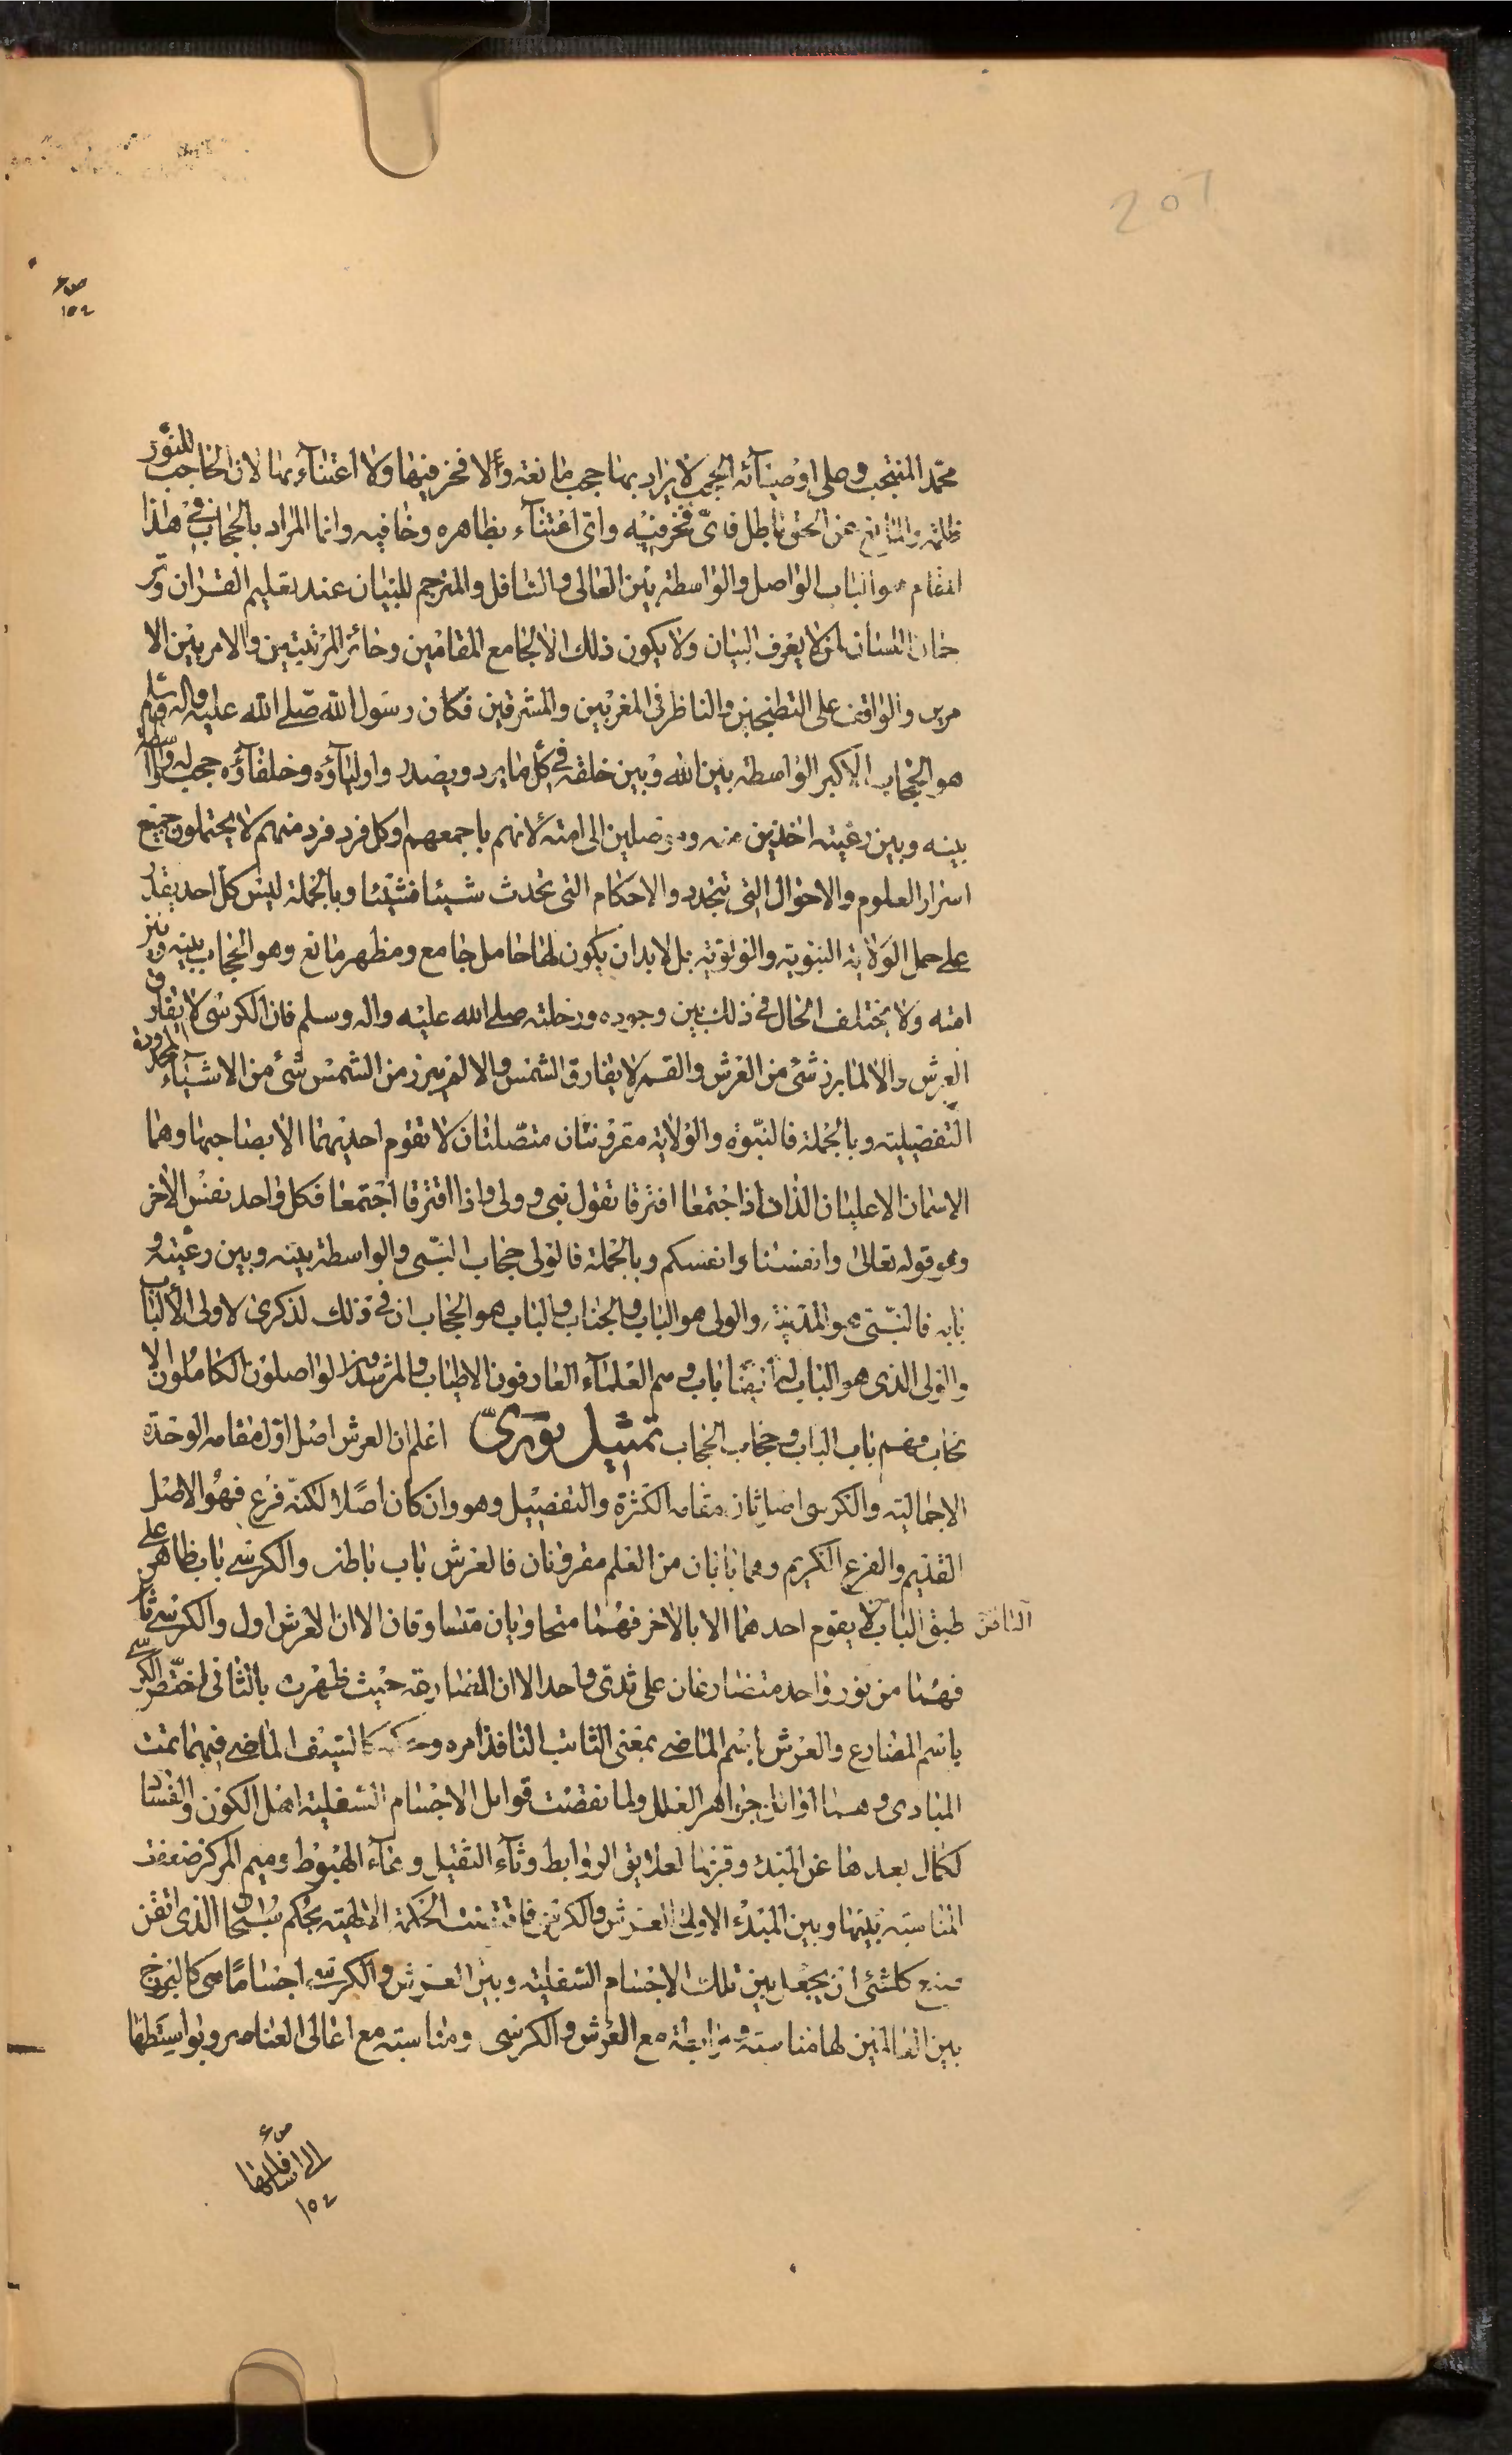 207
ص ع
١٥٤
محمّد المنتجب وصلى اوصيآئه الحجب لا يراد بها حجب مانعة والا فخر فيها ولا اعتنآء بها لان الحاجب للنّور
ظلمة والمانع عن الحق باطل فاىّ فخر فيه واىّ اعتنآء بظاهره وخافيه وانما المراد بالحجاب فى هذا
المقام هو الباب الواصل والواسطة بين العالى والسافل والمترجم للبيان عند تعليم القران وتر
جمان اللسان لمن لا يعرف البيان ولا يكون ذلك الا لجامع المقامين وحائز المرتبتين والامر بين الا
مرين والواقف على التطنجين والناظر فى المغربين والمشرقين فكان رسول الله صلى الله عليه واله وسلم
هو الحجاب الاكبر الواسطة بين الله وبين خلقه فى كل ما يرد ويصدر واوليآؤه وخلفآؤه حجب له ووسآئط
بينه وبين رعيته اخذين منه وموصلين الى امته لانهم باجمعهم او كل فرد فرد منهم لا يحتملون جميع
اسرار العلوم والاحوال التى تتجدد والاحكام التى تحدث شيئا فشيئا وبالجملة ليس كل احد يقدر
على حمل الولاية النبوية بل لابد ان يكون لها حامل جامع ومظهر مانع وهو الحجاب بينه وبين
امته ولا يختلف الحال فى ذلك بين وجوده ورحلته صلى الله عليه واله وسلم فان الكرسى لا يفارق
العرش والا لما برز شئ من العرش والقمر لا يفارق الشمس والا لم يبرز من الشمس شئ من الاشيآء المحدودة
التفصيلية وبالجملة فالنبّوة والولاية مقرونتان متصلتان لا تقوم احديهما الا بصاحبها وهما
الاسمان الاعليان الذان اذا اجتمعا افترقا تقول نبى وولى واذا افترقا اجتمعا فكل واحد نفس الاخر
وهو قوله تعالى وانفسنا وانفسكم وبالجملة فالولى حجاب النبى والواسطة بينه وبين رعيته و
بابه فالنبى هو المدينة والولى هو الباب والجناب والباب هو الحجاب ان فى ذلك لذكرى لاولى الالباب
والولى الذى هو الباب له ايضا باب وهم العلمآء العارفون الاطياب والمرشدون الواصلون الكاملون الا
نجاب فهم باب الباب وحجاب الحجاب تمثيل نورىّ اعلم ان العرش اصل اول مقامه الوحدة
الاجمالية والكرسى اصل ثان مقامه الكثرة والتفصيل وهو وان كان اصلا لكنه فرع فهو الاصل
القديم والفرع الكريم وهما بابان من العلم مقرونان فالعرش باب باطن والكرسى باب ظاهر على
طبق الباب الباطن لا يقوم احدهما الا بالاخر فهما متحاويان متساوقان الا ان العرش اول والكرسى ثان
فهما من نور واحد متضارعان على ثدى واحد الا ان المضارعة حيث ظهرت بالثانى اختص الكرسى
باسم المضارع والعرش باسم الماضى بمعنى الثابت النافذ امره وحكمه كالسيف الماضى فبهما تمت
المبادى وهما جواهر العلل ولما نقصت قوابل الاجسام السفلية اهل الكون والفساد
لكمال بعدها عن المبدء وقربها لعلايق الروابط وثآء الثقيل وهآء الهبوط وميم المركز ضعفت
المناسبة بينها وبين المبدء الاولى العرش والكرسى فاقتضت الحكمة الالهية بحكم سبحان الذى اتقن
صنع كلشئ ان يجعل بين تلك الاجسام السفلية وبين العرش والكرسى اجساما هى كالبرزخ
بين العالمين لها مناسبة ورابطة مع العرش والكرسى ومناسبة مع اعالى العناصر وبواسطتها
ص ع
الى اسافلها
١٥٤